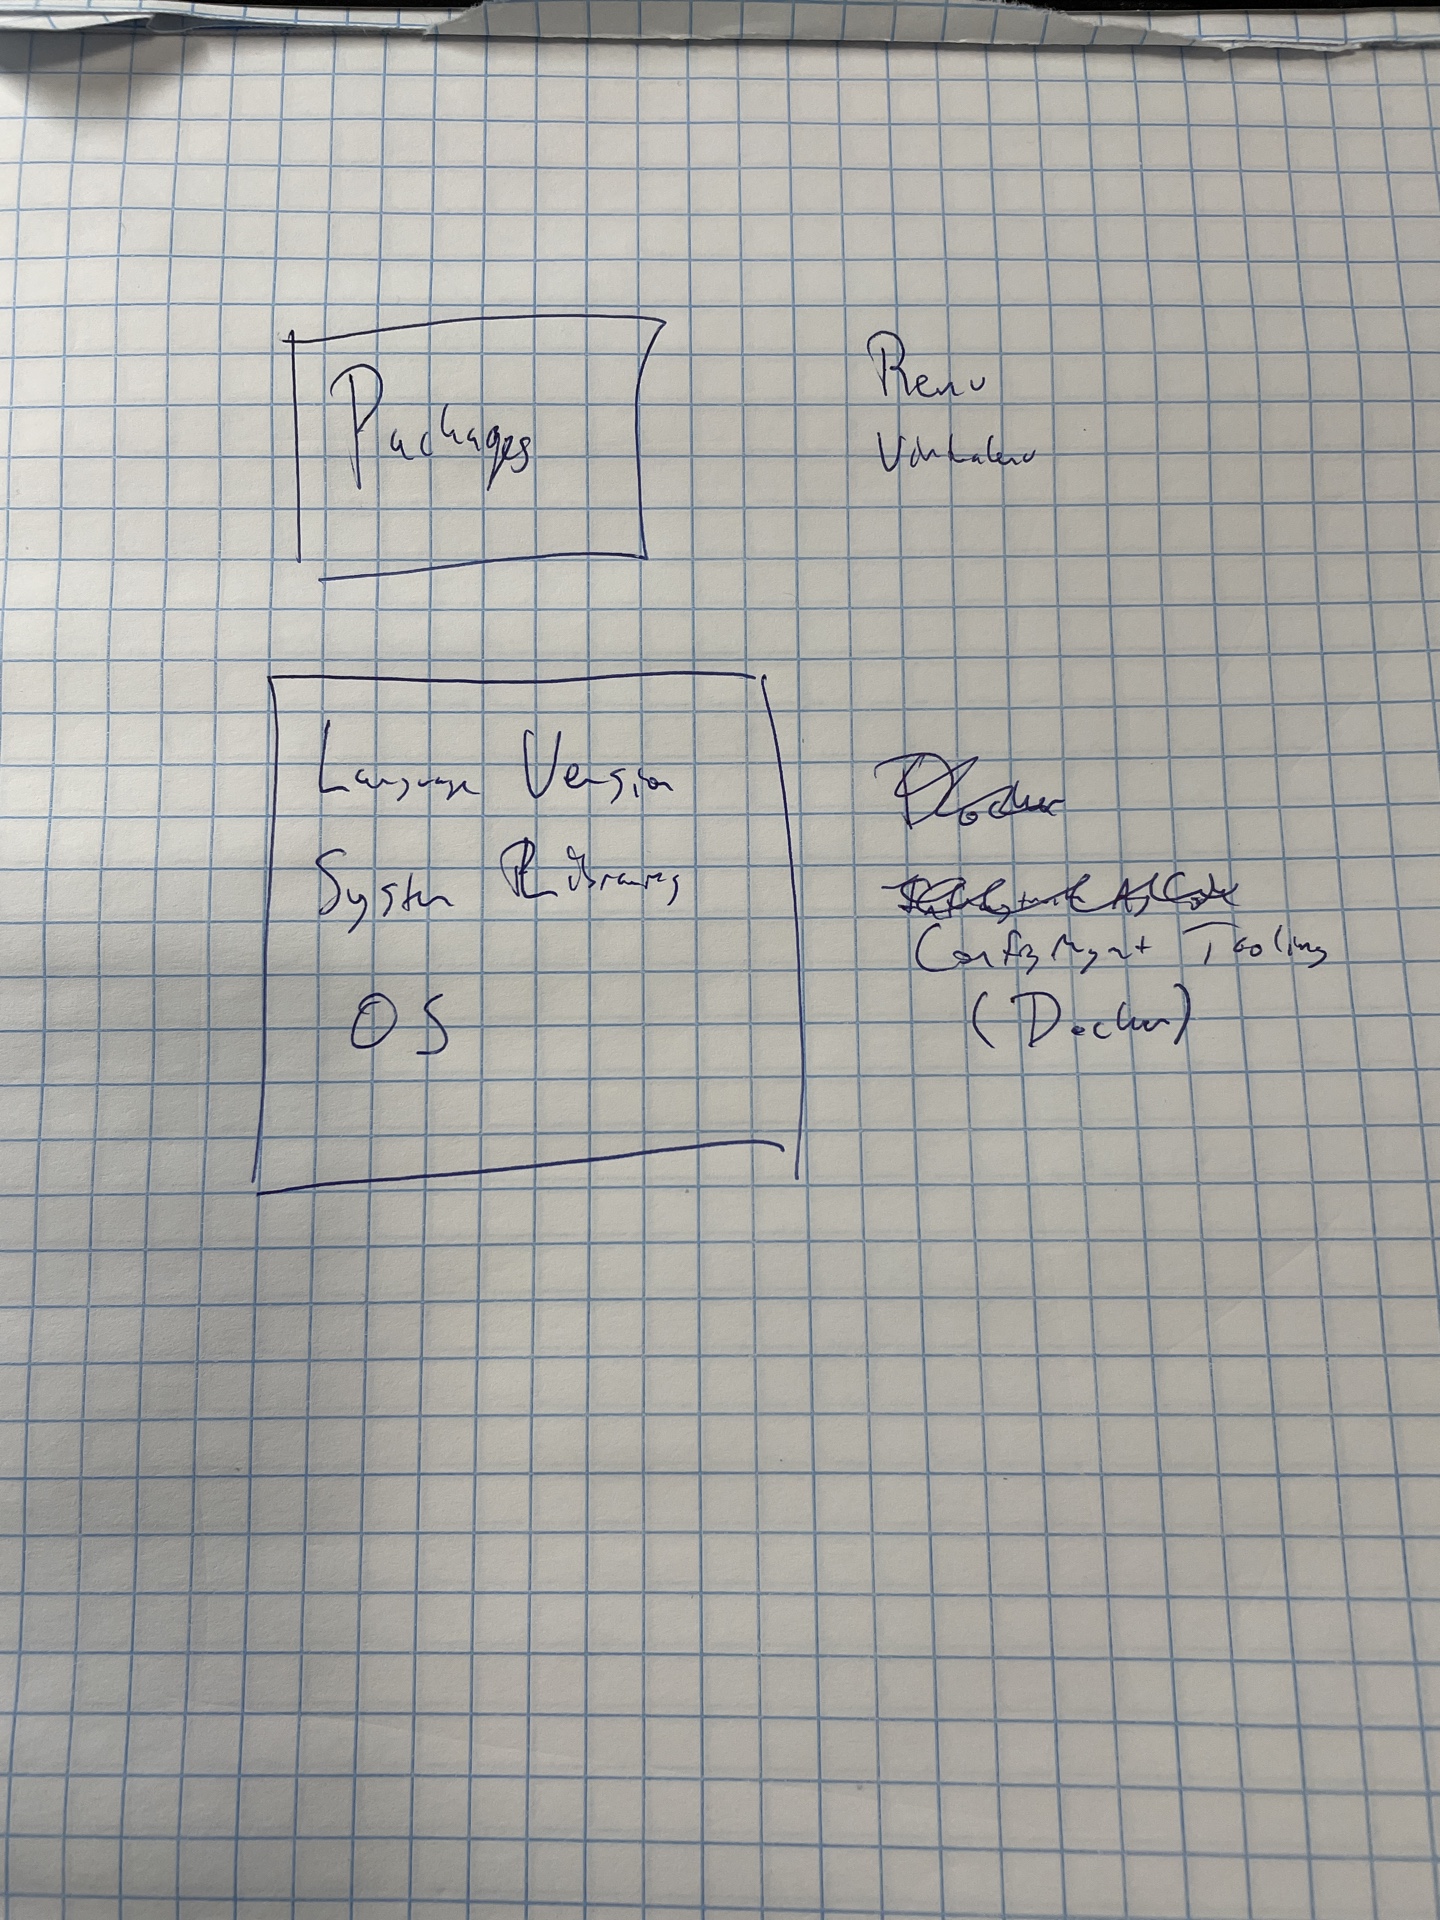 Packages
Renv
Virtualenv
Language Version
System Libraries
OS
Docker
Config Mgmt Tooling
(Docker)